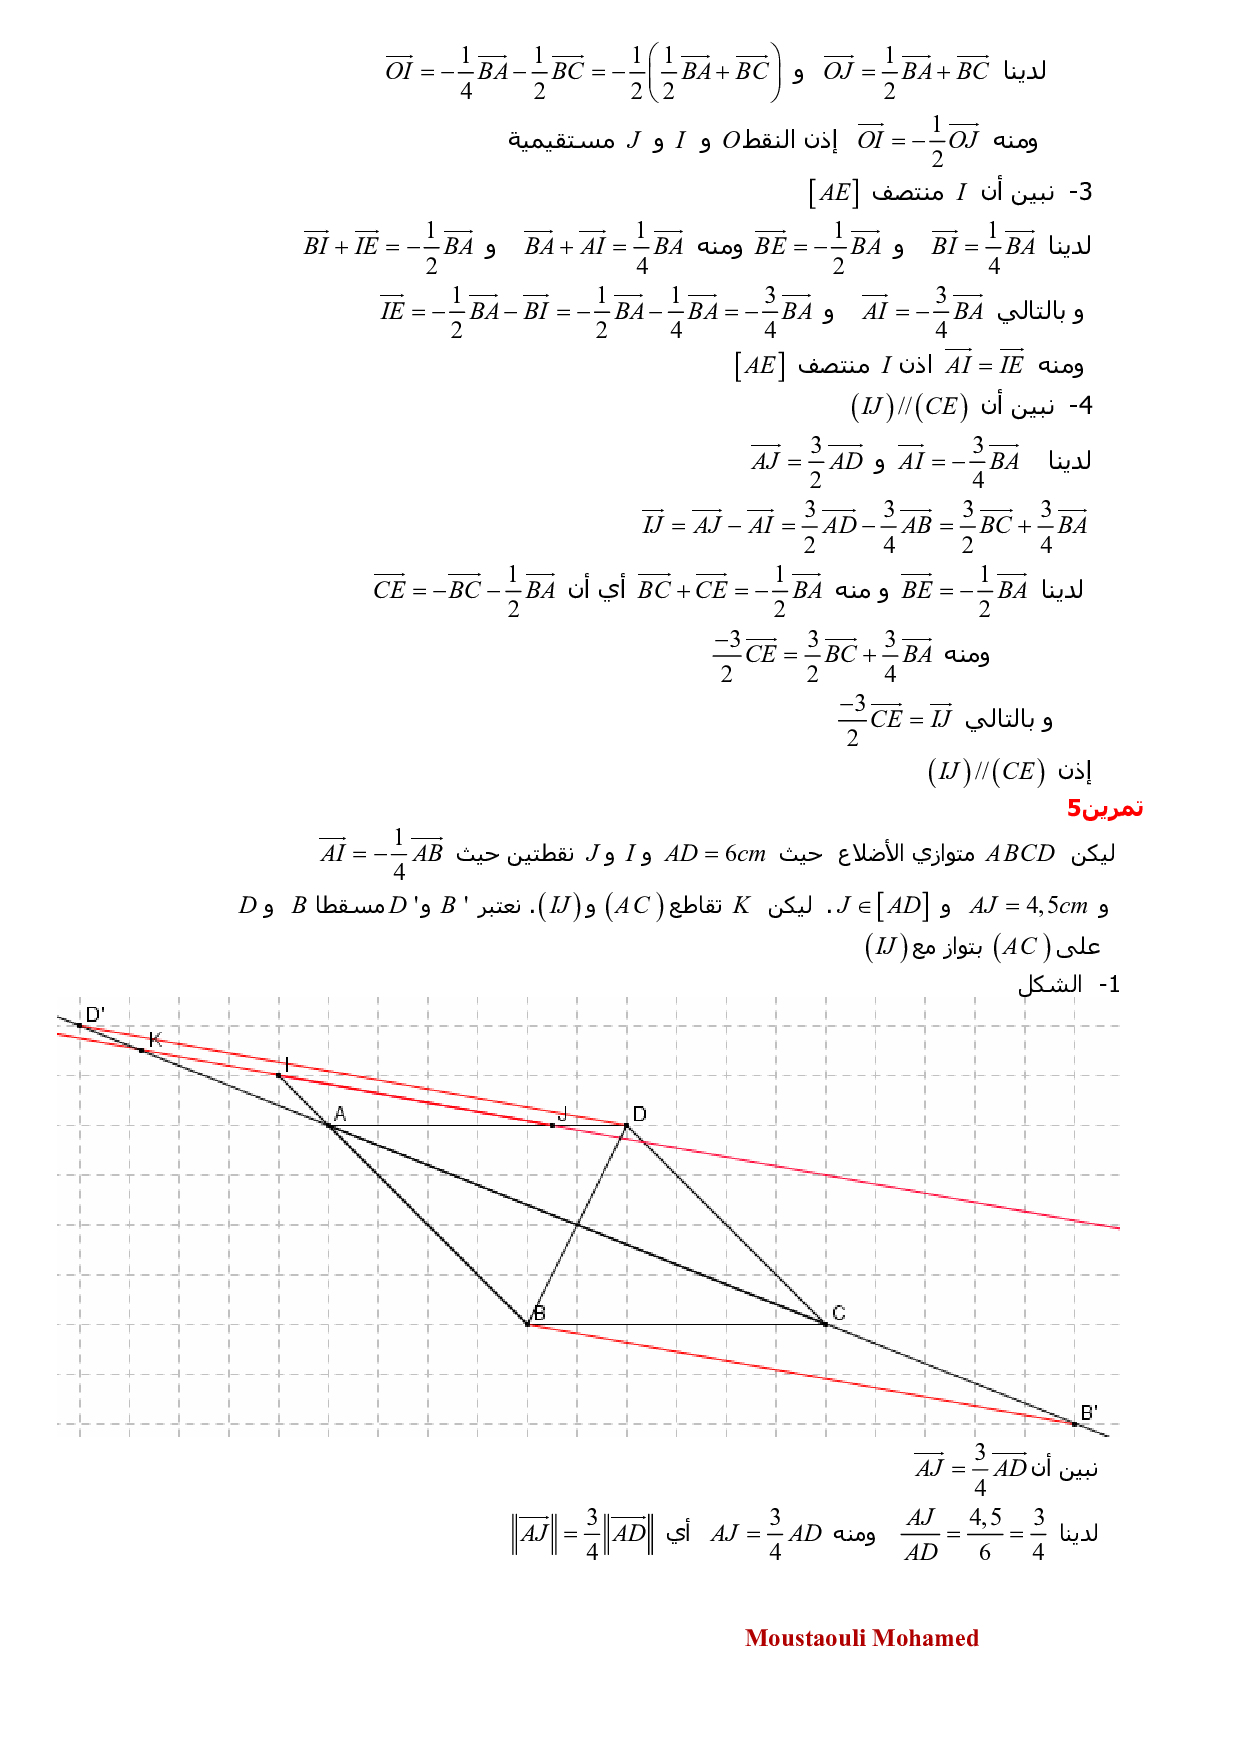 لدينا $\overrightarrow{OJ}=\frac{1}{2}\overrightarrow{BA}+\overrightarrow{BC}$ و $\overrightarrow{OI}=-\frac{1}{4}\overrightarrow{BA}-\frac{1}{2}\overrightarrow{BC}=-\frac{1}{2}\left(\frac{1}{2}\overrightarrow{BA}+\overrightarrow{BC}\right)$
ومنه $\overrightarrow{OI}=-\frac{1}{2}\overrightarrow{OJ}$ إذن النقط O و I و J مستقيمية
3- نبين أن I منتصف [AE]
لدينا $\overrightarrow{BI}=\frac{1}{4}\overrightarrow{BA}$ و $\overrightarrow{BE}=-\frac{1}{2}\overrightarrow{BA}$ ومنه $\overrightarrow{BA}+\overrightarrow{AI}=\frac{1}{4}\overrightarrow{BA}$ و $\overrightarrow{BI}+\overrightarrow{IE}=-\frac{1}{2}\overrightarrow{BA}$
و بالتالي $\overrightarrow{AI}=-\frac{3}{4}\overrightarrow{BA}$ و $\overrightarrow{IE}=-\frac{1}{2}\overrightarrow{BA}-\overrightarrow{BI}=-\frac{1}{2}\overrightarrow{BA}-\frac{1}{4}\overrightarrow{BA}=-\frac{3}{4}\overrightarrow{BA}$
ومنه $\overrightarrow{AI}=\overrightarrow{IE}$ اذن I منتصف [AE]
4- نبين أن (IJ)//(CE)
لدينا $\overrightarrow{AI}=-\frac{3}{4}\overrightarrow{BA}$ و $\overrightarrow{AJ}=\frac{3}{2}\overrightarrow{AD}$
$\overrightarrow{IJ}=\overrightarrow{AJ}-\overrightarrow{AI}=\frac{3}{2}\overrightarrow{AD}-\frac{3}{4}\overrightarrow{AB}=\frac{3}{2}\overrightarrow{BC}+\frac{3}{4}\overrightarrow{BA}$
لدينا $\overrightarrow{BE}=-\frac{1}{2}\overrightarrow{BA}$ و منه $\overrightarrow{BC}+\overrightarrow{CE}=-\frac{1}{2}\overrightarrow{BA}$ أي أن $\overrightarrow{CE}=-\overrightarrow{BC}-\frac{1}{2}\overrightarrow{BA}$
ومنه $\frac{-3}{2}\overrightarrow{CE}=\frac{3}{2}\overrightarrow{BC}+\frac{3}{4}\overrightarrow{BA}$
و بالتالي $\frac{-3}{2}\overrightarrow{CE}=\overrightarrow{IJ}$
إذن (IJ)//(CE)
تمرين5
ليكن ABCD متوازي الأضلاع حيث AD = 6cm و I و J نقطتين حيث $\overrightarrow{AI}=-\frac{1}{4}\overrightarrow{AB}$
و AJ = 4,5cm و J∈[AD]. ليكن K تقاطع (AC) و(IJ). نعتبر B' و D' مسقطا B و D
على (AC) بتواز مع (IJ)
1- الشكل
D'
K
I
A
J
D
B
C
B'
نبين أن $\overrightarrow{AJ}=\frac{3}{4}\overrightarrow{AD}$
لدينا $\frac{AJ}{AD}=\frac{4,5}{6}=\frac{3}{4}$ ومنه $AJ=\frac{3}{4}AD$ أي $\left\|\overrightarrow{AJ}\right\|=\frac{3}{4}\left\|\overrightarrow{AD}\right\|$
Moustaouli Mohamed